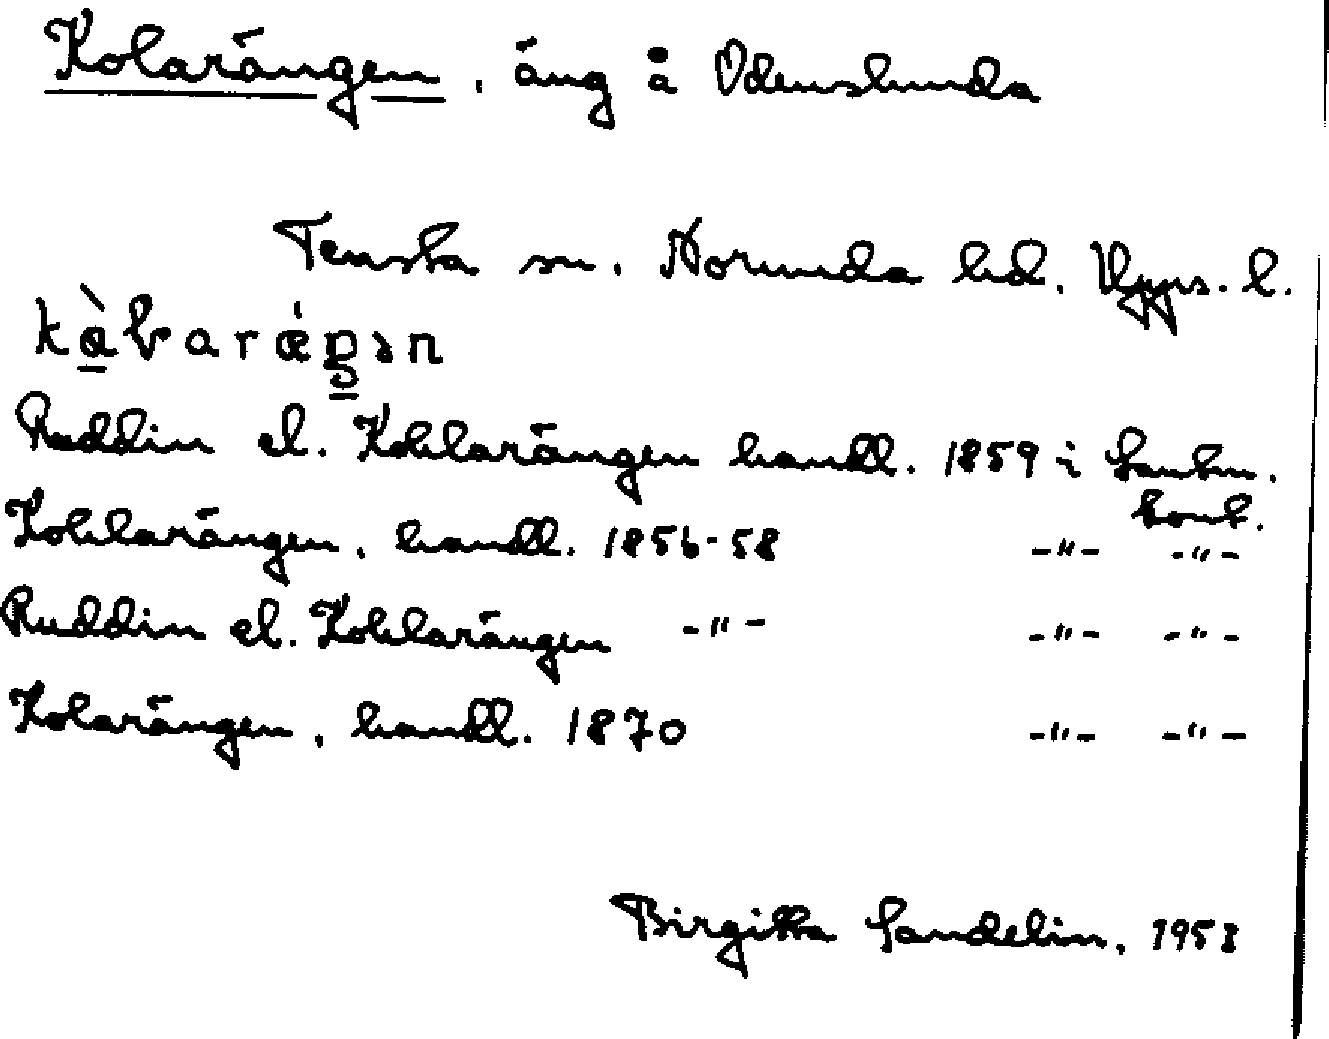 Kolarängen, äng å Odenslunda
Tensta sn. Norunda hd. Upps. l.
Ruddin el. Kohlarängen handl. 1859 i Lantm.
kont.
Kohlarängen, handl. 1856-58 -"- -"-
Ruddin el. Kohlarängen -"- -"- -"-
Kolarängen, handl. 1870 -"- -"-
Birgitta Sandelin, 1953